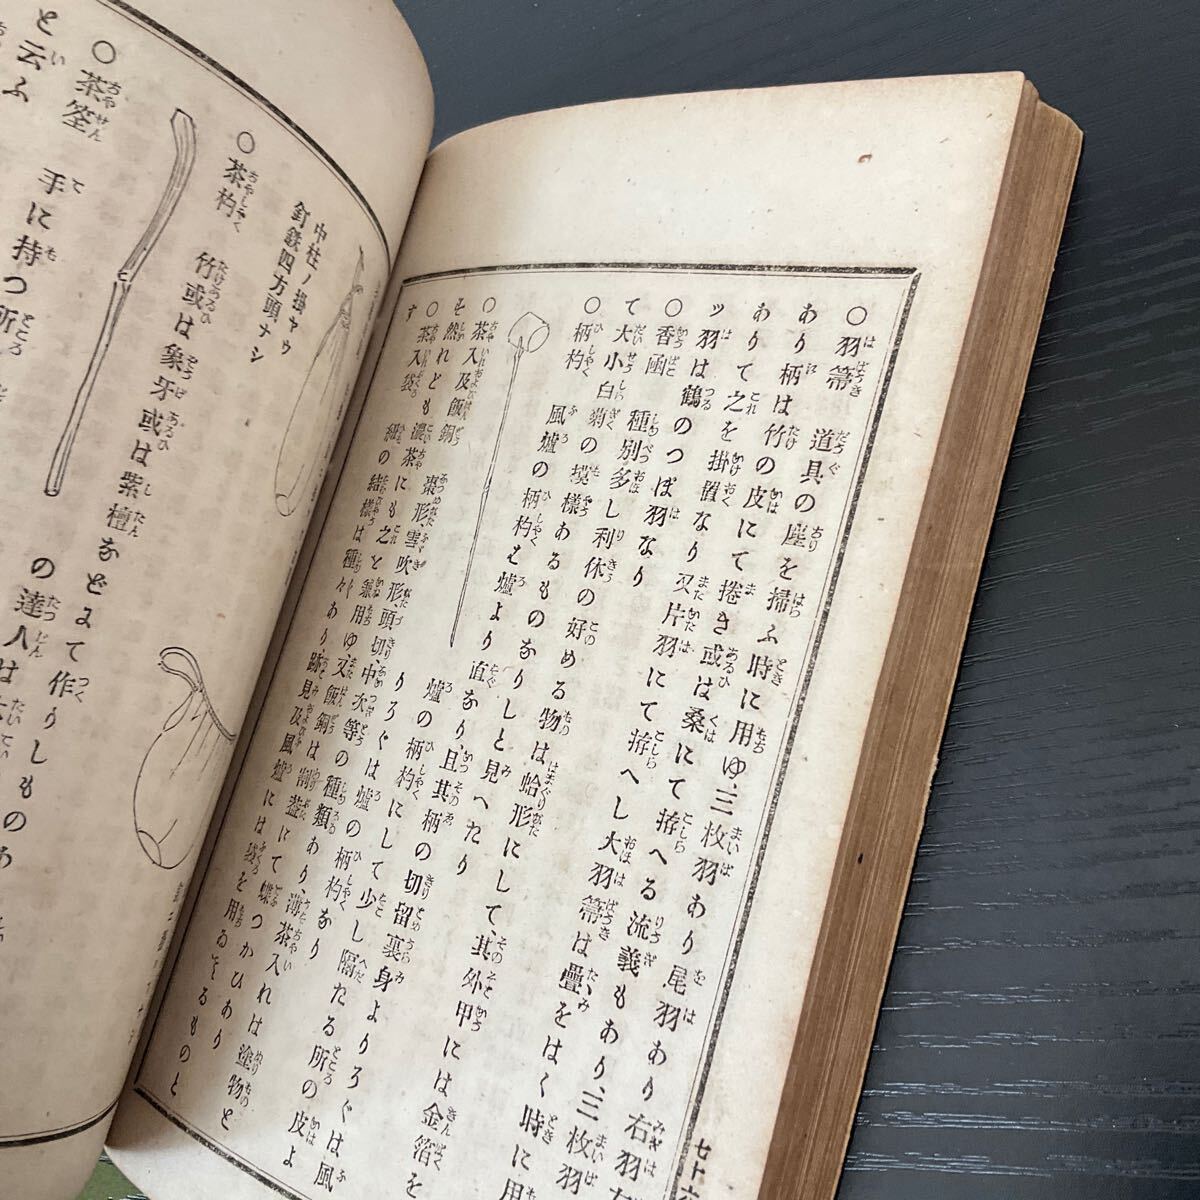 〇羽箒　道具の座を掃ふ時に用ゆ、三枚羽あり尾羽あり右羽
あり柄は竹の皮にて捲き或は桑にて拵へる流義もあり、三枚羽
ありて之を掛置なり又片羽にて拵へし大羽箒は疊をはく時に用
ッ羽は鶴のつぼ羽なり
〇香凾　種別多し利休の好める物は蛤形にして、其外甲には金箔を
て大小白菊の模樣あるものなりしと見へたり
〇柄杓　風爐の柄杓は爐より直なり、且其柄の切留裏身よりろぐは風
爐の柄杓にして少し隔たる所の皮よ
りろぐは爐の柄杓なり
〇茶入及飯銅　棗形雪吹形頭切、中次等の種類あり、薄茶入れは塗物と
そ然れども濃茶にも之と兼用ゆ、又飯銅は割葢にて蝶つかひあり
〇茶入袋　紐の結樣は種々あり、跡見及風爐には袋を用ゐざるものと
す
七十六
中柱ノ掛ヤウ
釘鉄四方頭ナシ
〇茶杓　竹或は象牙或は紫檀などにて作りしものあ
〇茶筌
手に持つ所
の達人は
と云ふ